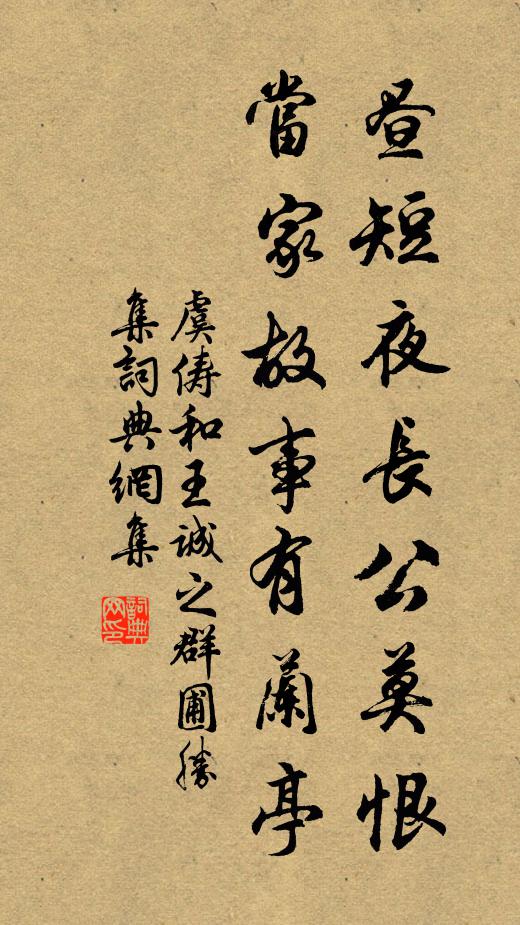 昼短夜長公莫恨
當家故事有蘭亭
虞儔和王誠之群圃勝
集詞典網集
詞典
网印